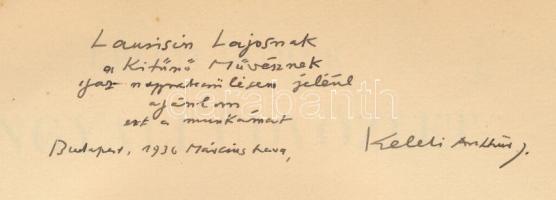 Lausisin Lajosnak
a Kitűnő Művésznek
igaz nagyrabecsülésem jeléül
ajánlom
ezt a munkámat
Budapest, 1936 Március hava,
Keleti Arthur
darabanth